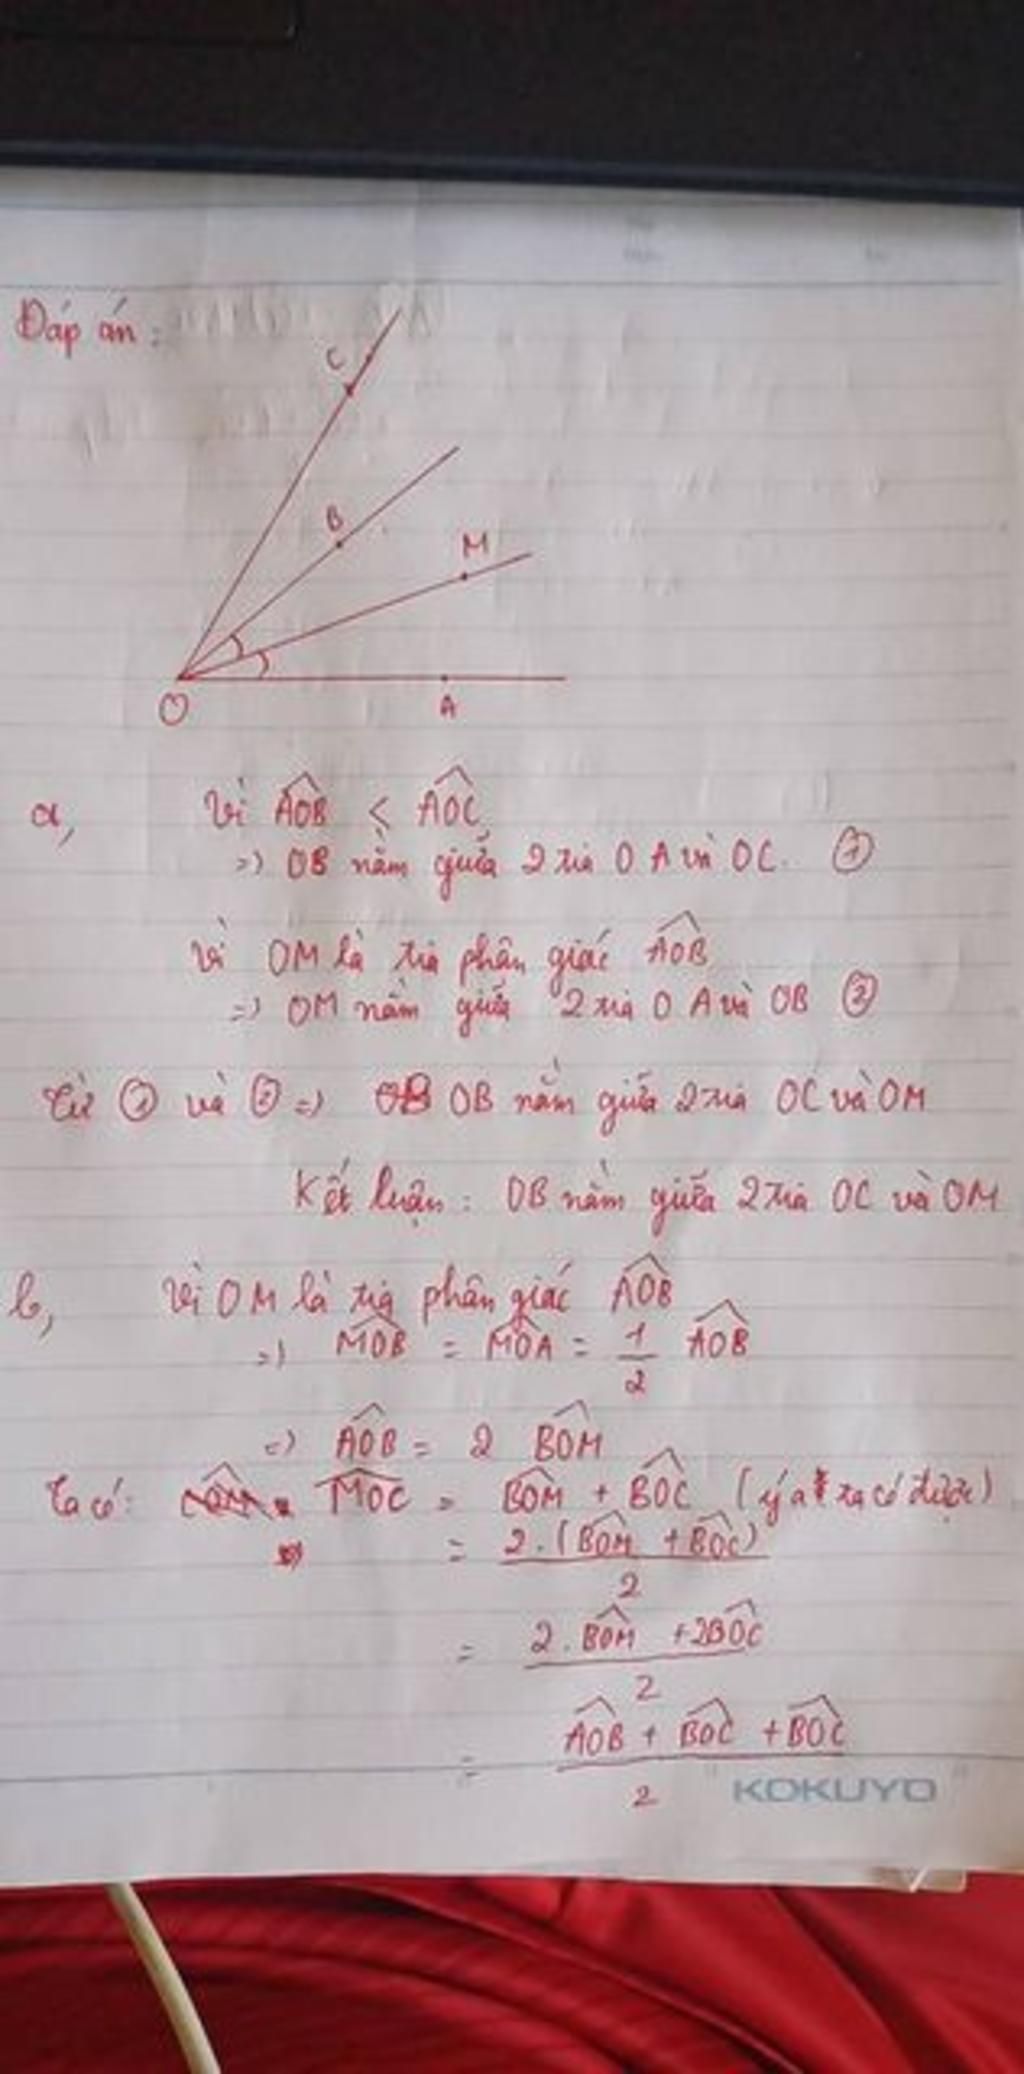 Đáp án:
C
B
M
O
A
a, Vì AOB < AOC,
=> OB nằm giữa 2 tia OA và OC. ①
Vì OM là tia phân giác AOB
=> OM nằm giữa 2 tia OA và OB ②
Từ ① và ② => OB OB nằm giữa 2 tia OC và OM
Kết luận: OB nằm giữa 2 tia OC và OM
b, Vì OM là tia phân giác AOB
=> MOB = MOA = 1/2 AOB
=> AOB = 2 BOM
Ta có: MOC = BOM + BOC (ý a ta có được)
= 2.(BOM + BOC)/2
= 2.BOM + 2BOC/2
= AOB + BOC + BOC/2
KOKUYO